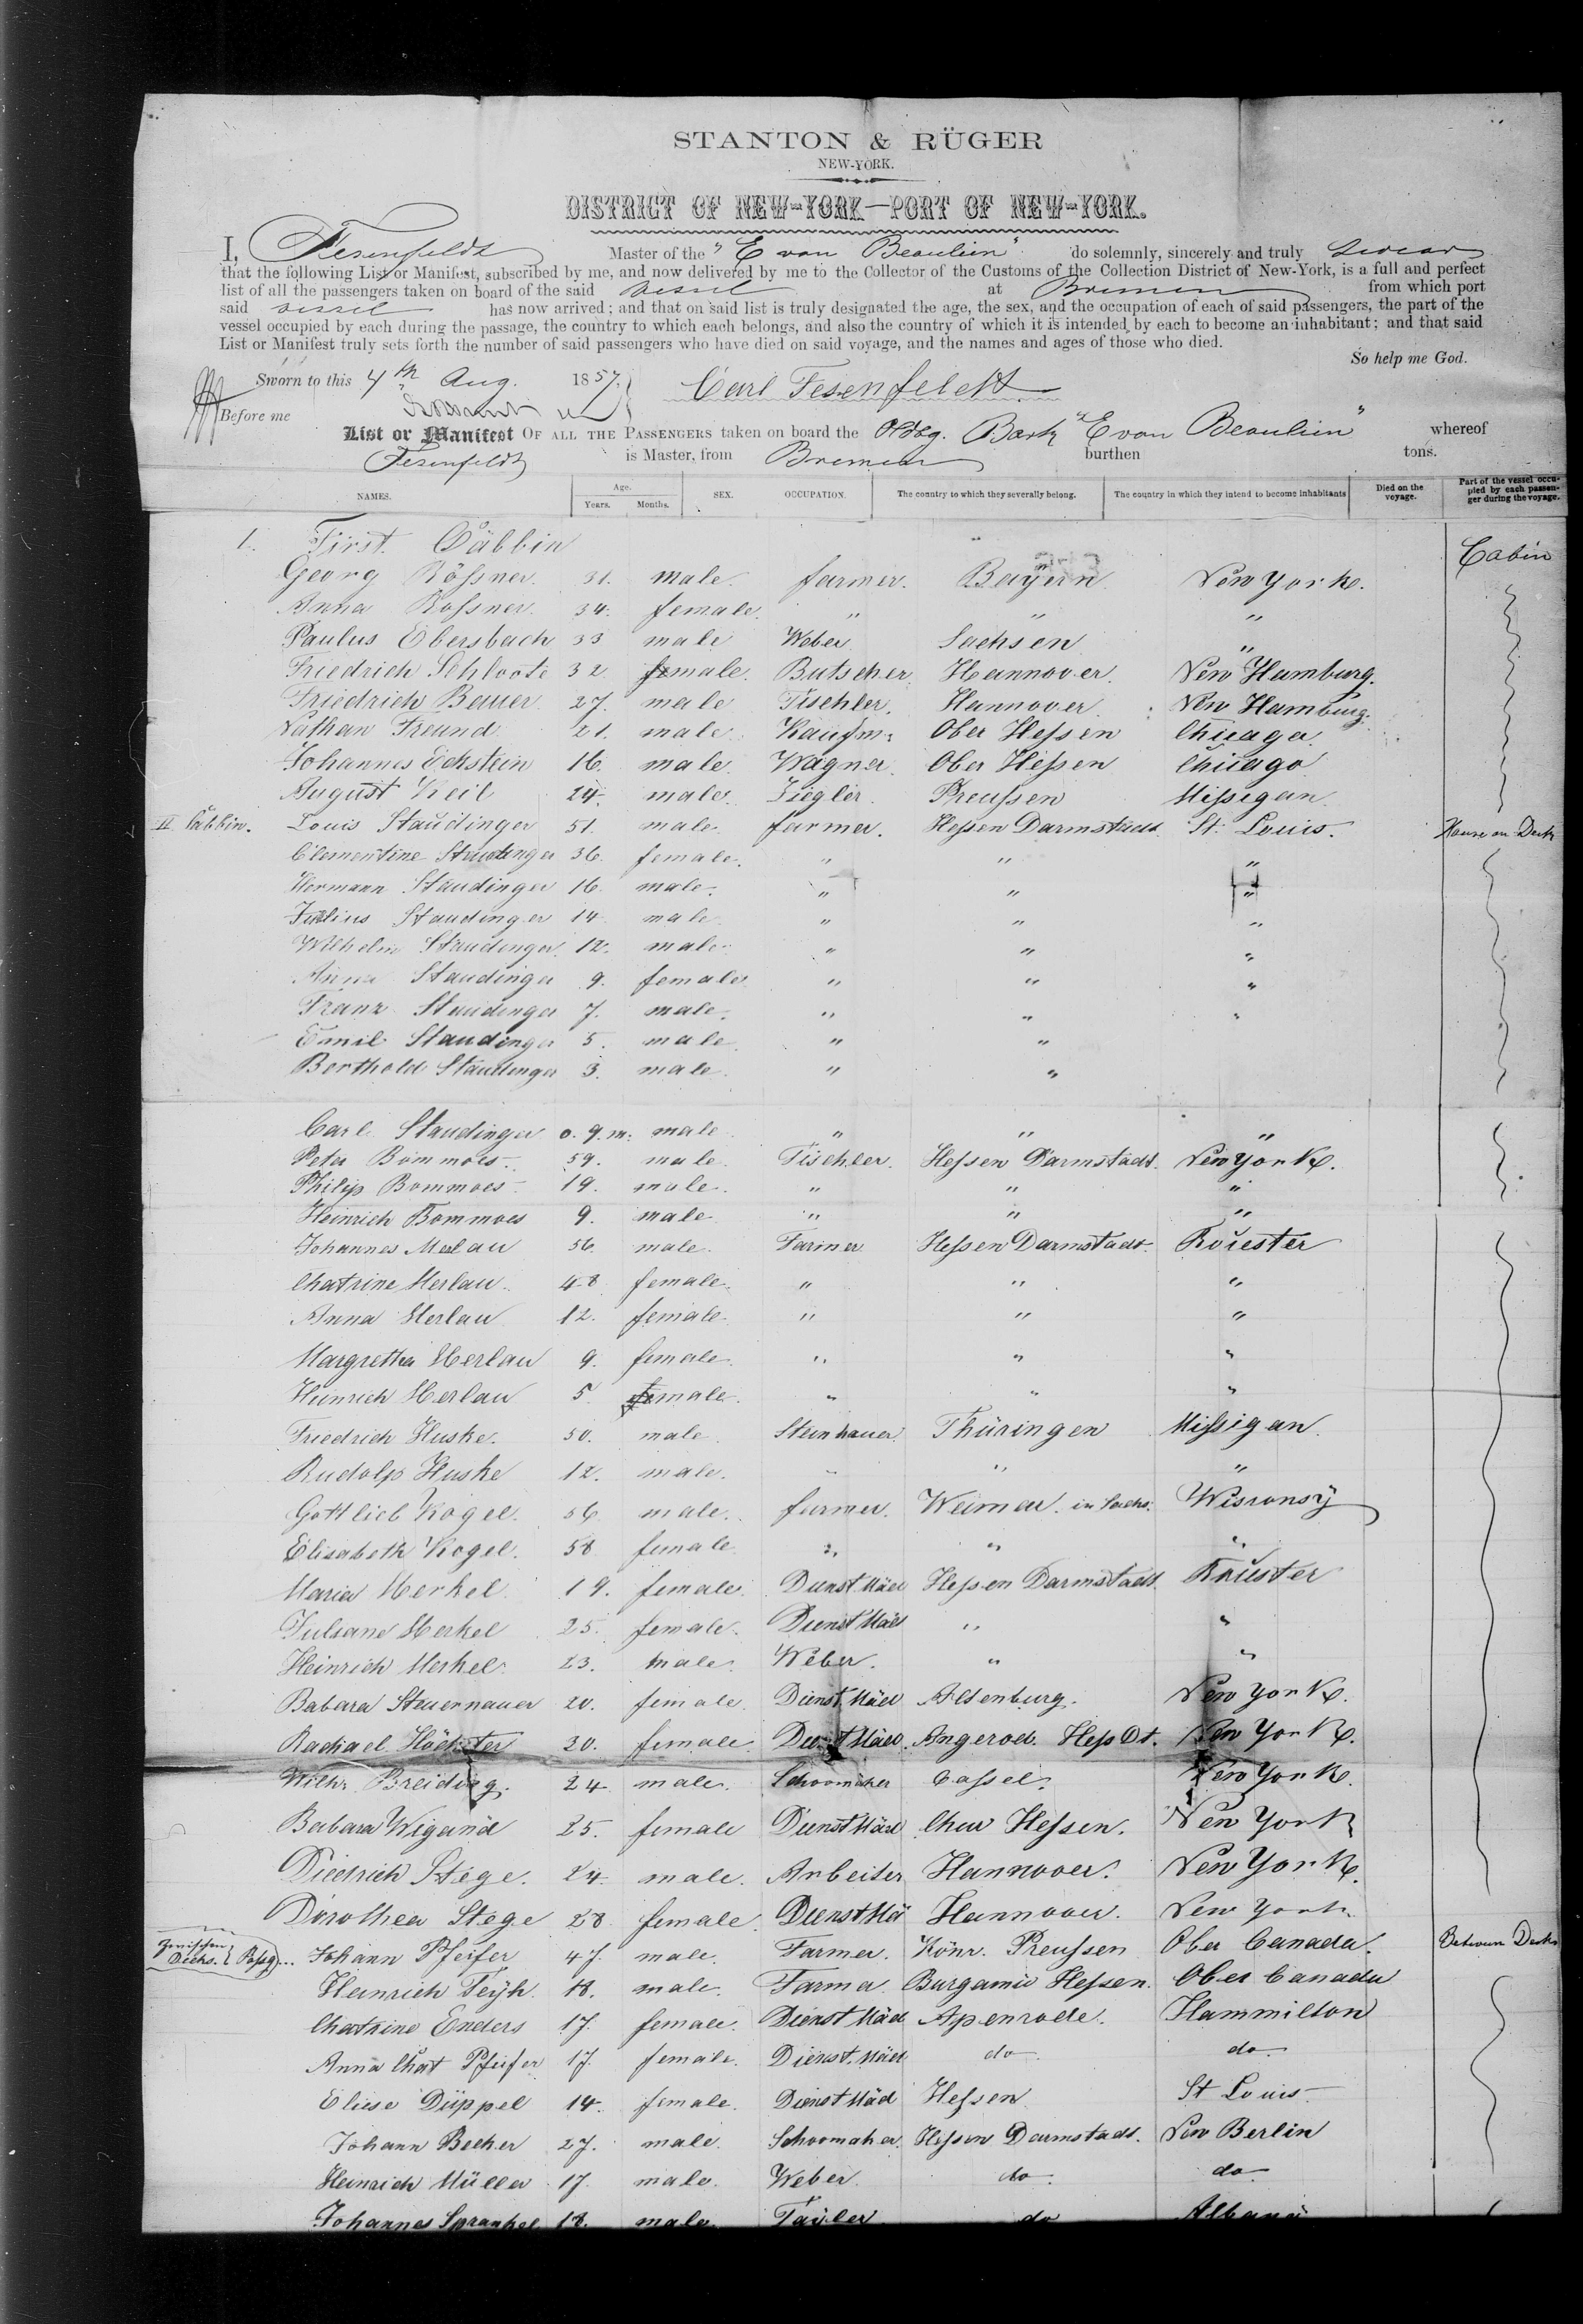 STANTON & RÜGER
NEW-YORK.
DISTRICT OF NEW-YORK—PORT OF NEW-YORK.
I, Fesenfeldt Master of the "E von Beaulieu" do solemnly, sincerely and truly swear
that the following List or Manifest, subscribed by me, and now delivered by me to the Collector of the Customs of the Collection District of New-York, is a full and perfect
list of all the passengers taken on board of the said vessel at Bremen from which port
said vessel has now arrived; and that on said list is truly designated the age, the sex, and the occupation of each of said passengers, the part of the
vessel occupied by each during the passage, the country to which each belongs, and also the country of which it is intended by each to become an inhabitant; and that said
List or Manifest truly sets forth the number of said passengers who have died on said voyage, and the names and ages of those who died.
So help me God.
Sworn to this 4th Aug. 1857. Carl Fesenfeldt
Before me
List or Manifest OF ALL THE PASSENGERS taken on board the Oldbg. Bark "E von Beaulieu" whereof
Fesenfeldt is Master, from Bremen burthen tons.
NAMES. Age. Years. Months. SEX. OCCUPATION. The country to which they severally belong. The country in which they intend to become inhabitants Died on the voyage. Part of the vessel occupied by each passenger during the voyage.
1. First Cäbbin Cabin
Georg Rößner. 31. male. farmer. Bayern New York.
Anna Roßner. 34. female. " " "
Paulus Ebersbach 33 male Weber Sachsen "
Friedrich Schloote 32 male. Butscher. Hannover. New Hamburg.
Friedrich Bauer. 27. male Tischler. Hannover. New Hamburg.
Nathan Freund 21. male. Kaufm: Ober Heßen Chicago.
Johannes Eckstein 16. male. Wagner. Ober Heßen Chicago
August Keil 24. male. Ziegler. Preußen Mißigan.
II Cäbbin. Louis Staudinger 51. male. farmer. Heßen Darmstadt St. Louis. House on Deck
Clementine Staudinger 36. female. " " "
Hermann Staudinger 16. male. " " "
Julius Staudinger 14 male. " " "
Wilhelm Staudinger. 12. male. " " "
Anna Staudinger 9. female. " " "
Franz Staudinger 7. male. " " "
Emil Staudinger 5. male. " "
Berthold Staudinger 3. male. " "
Carl Staudinger 0.9.m. male " " "
Peter Bommoes. 59. male. Tischler. Heßen Darmstadt. New York.
Philip Bommoes 19. male. " " "
Heinrich Bommoes 9. male " " "
Johannes Merlau 56. male. Farmer Heßen Darmstadt. Rochester
Chatrine Merlau. 48 female. " " "
Anna Merlau 12. female. " " "
Margretha Merlau 9. female. " " "
Heinrich Merlau 5 male. " " "
Friedrich Huske. 50. male Steinhauer. Thüringen Mißigan.
Rudolp Huske 12. male. " " "
Gottlieb Kogel. 56. male. farmer. Weimar. in Sachs:
Elisabeth Kogel. 58 female. " " "
Maria Merkel. 19. female. Dienst Mäd Heßen Darmstadt. Rochester
Juliane Merkel 25. female. Dienst Mäd " "
Heinrich Merkel. 23. male. Weber. " "
Babara Steuernauer 20. female. Dienst Mäd Altenburg. New York.
Rachael Höchster 20. female. Dienst Mäd. Angerod. Heß Dt. New York.
Breiding. 24 male. Schoomaker Cassel. New York.
Babara Wigand 25. female Dienst Mäd Chur Heßen. New York
Diedrich Stege. 24. male. Arbeiter Hannover. New York.
Dorothea Stege 28 female. Dienst Mä Hannover. New York.
Zwischen Decks. Paßg... Johann Pfeifer 47. male. Farmer. Könr. Preußen Ober Canada. Between Decks
Heinrich Feyh. 18. male. Farmer. Heßen. Ober Canada
Chatrine Enders 17. female. Dienst Mäd Apenrode. Hammilton
Anna Chat Pfeifer 17. female. Dienst. Mäd do. do.
Eliese Düppel 14. female. Dienst Mäd Heßen St Louis
Johann Becker 27. male. Schoomaker. Heßen Darmstadt. New Berlin
Heinrich Müller 17. male. Weber. do. do.
Johannes Sprankel 18. male. do